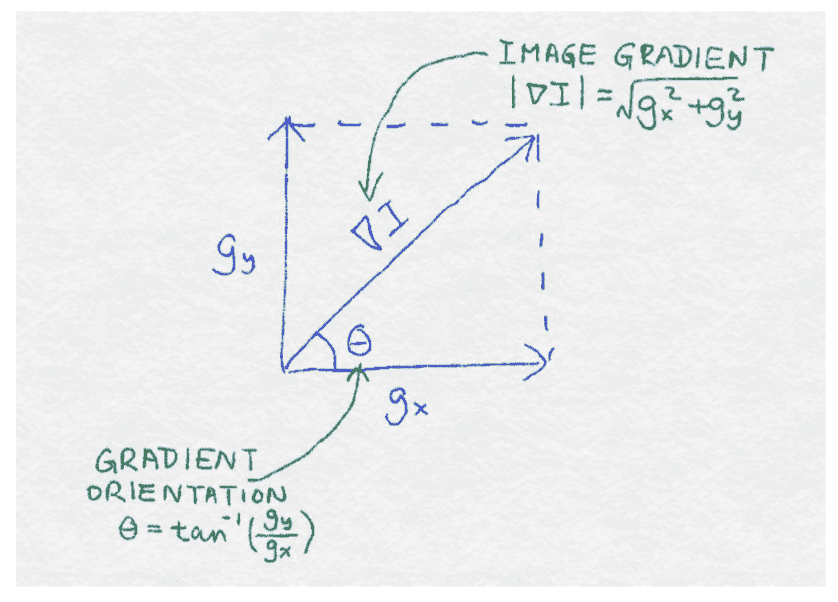 IMAGE GRADIENT
|∇I| = √(gx² + gy²)
gy
∇I
θ
gx
GRADIENT
ORIENTATION
θ = tan⁻¹(gy/gx)